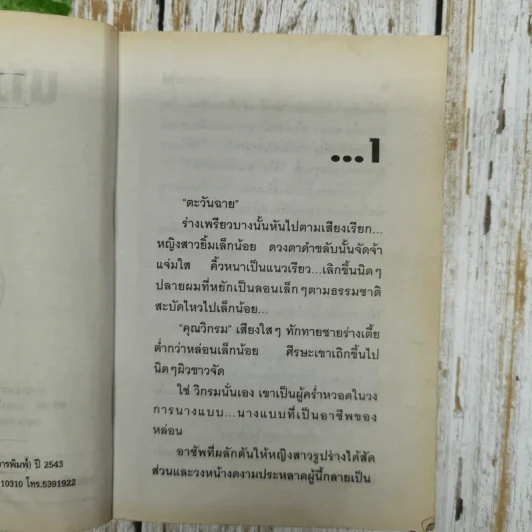 การพิมพ์) ปี 2543
10310 โทร.5391922
...1
“ตะวันฉาย”
ร่างเพรียวบางนั้นหันไปตามเสียงเรียก...
หญิงสาวยิ้มเล็กน้อย ดวงตาดำขลับนั้นจัดจ้า
แจ่มใส คิ้วหนาเป็นแนวเรียว...เลิกขึ้นนิดๆ
ปลายผมที่หยักเป็นลอนเล็กๆตามธรรมชาติ
สะบัดไหวไปเล็กน้อย...
“คุณวิกรม” เสียงใสๆ ทักทายชายร่างเตี้ย
ต่ำกว่าหล่อนเล็กน้อย ศีรษะเขาเถิกขึ้นไป
นิดๆผิวขาวจัด
ใช่ วิกรมนั่นเอง เขาเป็นผู้คร่ำหวอดในวง
การนางแบบ...นางแบบที่เป็นอาชีพของ
หล่อน
อาชีพที่ผลักดันให้หญิงสาวรูปร่างได้สัด
ส่วนและวงหน้างดงามประหลาดผู้นี้กลายเป็น